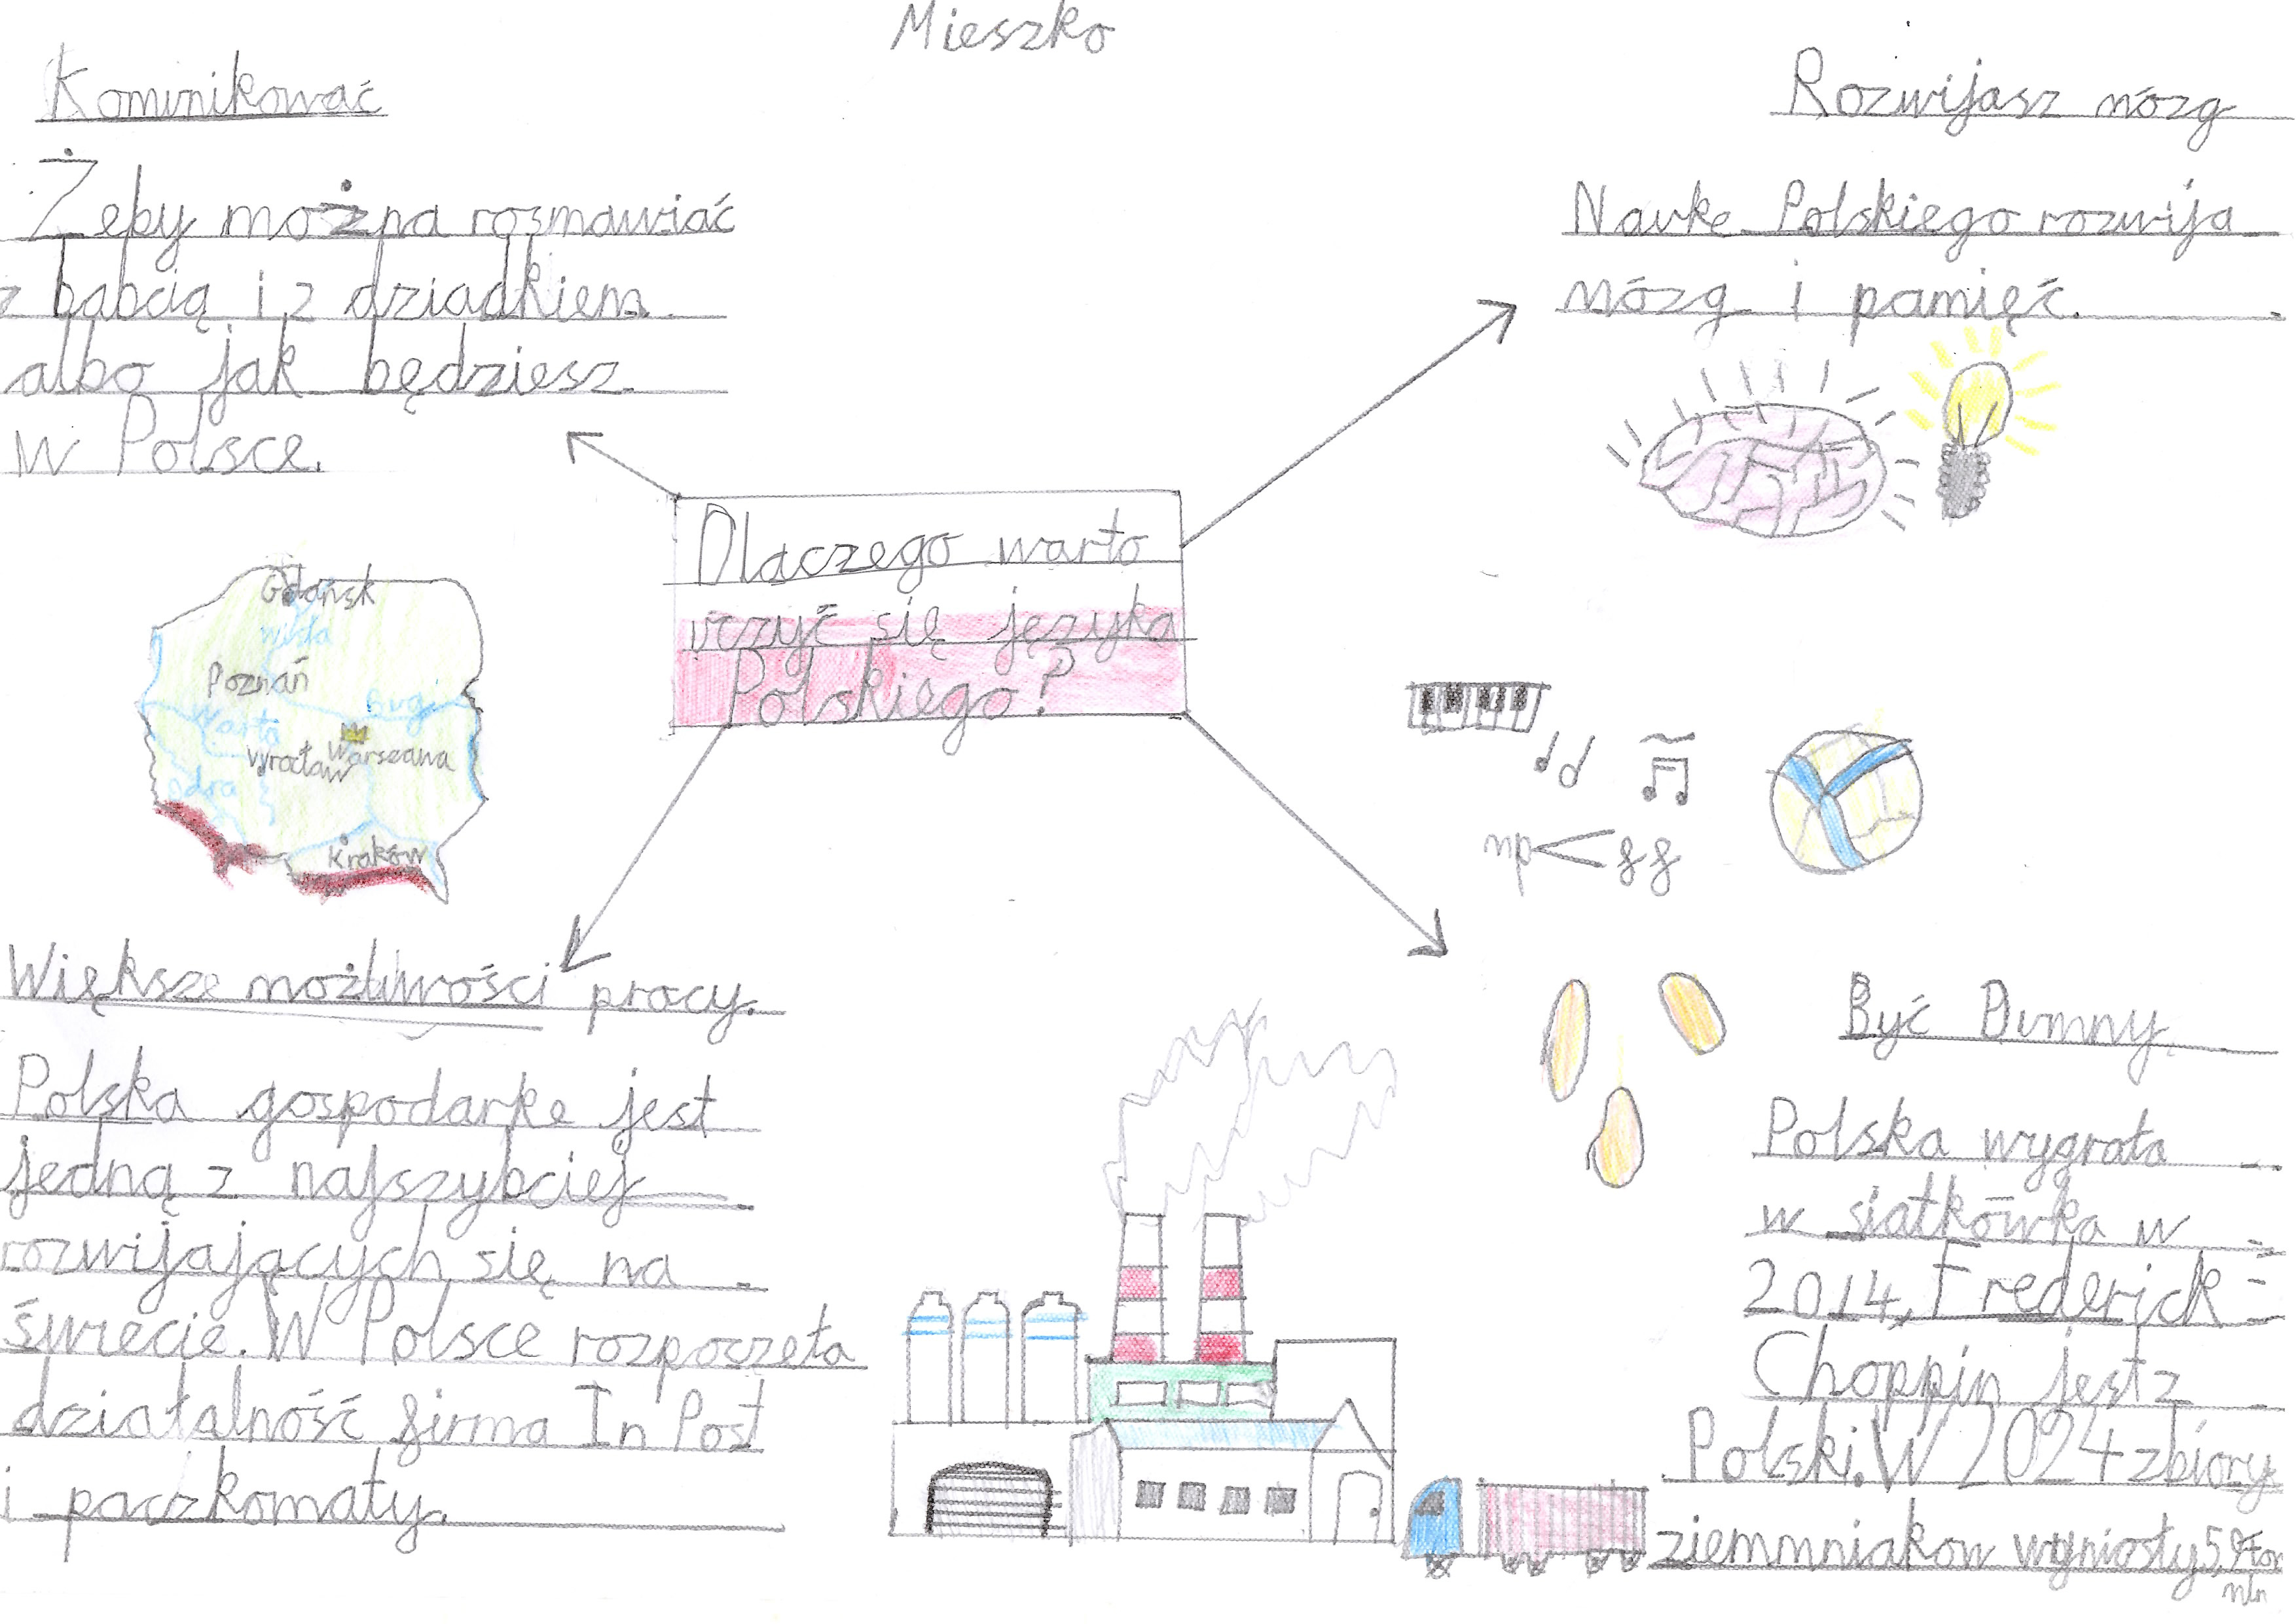 Mieszko
Kominikować
Żeby można rosmawiać
z babcią i z dziadkiem
albo jak będziesz
w Polsce.
Rozwijasz mózg
Nauke Polskiego rozwija
mózg i pamięć.
Dlaczego warto
uczyć się języka
Polskiego?
Gdańsk
wisła
Poznań
Bug
Warta
Warszawa
Wrocław
odra
Kraków
mp < ff
Większe możliwości pracy.
Polska gospodarke jest
jedną z najszybciej
rozwijających się na
świecie. W Polsce rozpoczęta
działalność firma In Post
i paczkomaty.
Być Dumny
Polska wygrała
w siatkówka w
2014, Frederick
Choppin jest z
Polski. W 2024 zbiory
ziemmniakow wyniosły 5,9 ton
mln